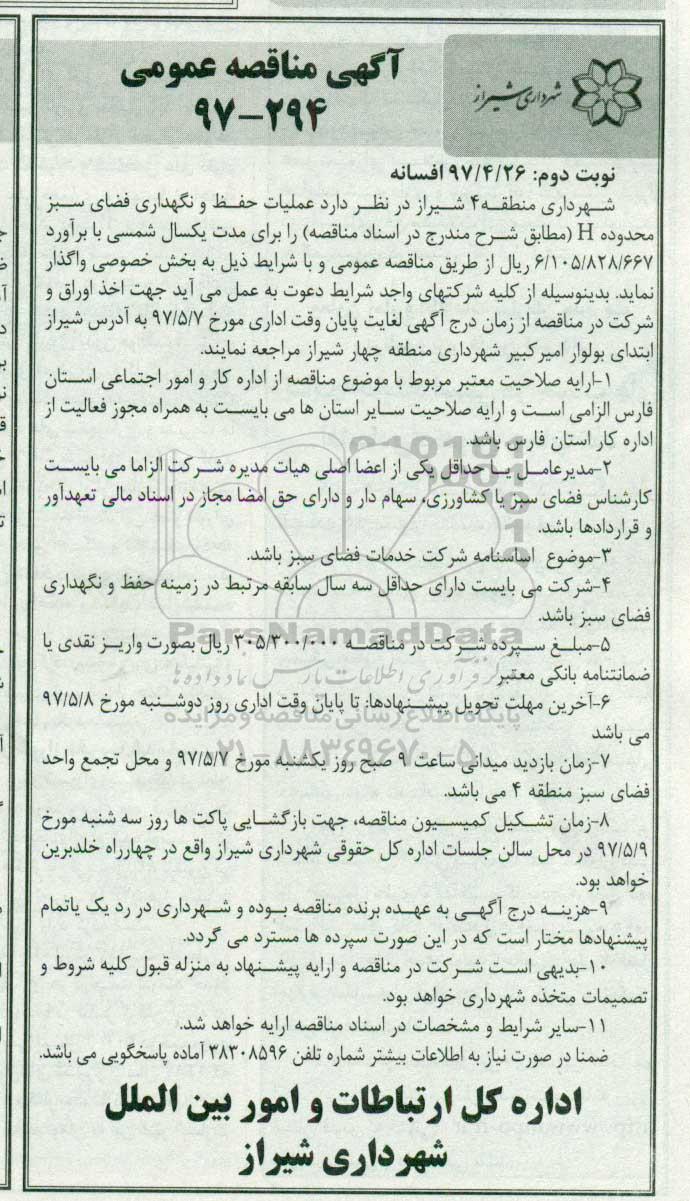 آگهی مناقصه عمومی
۹۷-۲۹۴
شهرداری شیراز
نوبت دوم: ۹۷/۴/۲۶ افسانه
شهرداری منطقه۴ شیراز در نظر دارد عملیات حفظ و نگهداری فضای سبز
محدوده H (مطابق شرح مندرج در اسناد مناقصه) را برای مدت یکسال شمسی با برآورد
۶/۱۰۵/۸۲۸/۶۶۷ ریال از طریق مناقصه عمومی و با شرایط ذیل به بخش خصوصی واگذار
نماید. بدینوسیله از کلیه شرکتهای واجد شرایط دعوت به عمل می آید جهت اخذ اوراق و
شرکت در مناقصه از زمان درج آگهی لغایت پایان وقت اداری مورخ ۹۷/۵/۷ به آدرس شیراز
ابتدای بولوار امیرکبیر شهرداری منطقه چهار شیراز مراجعه نمایند.
۱-ارایه صلاحیت معتبر مربوط با موضوع مناقصه از اداره کار و امور اجتماعی استان
فارس الزامی است و ارایه صلاحیت سایر استان ها می بایست به همراه مجوز فعالیت از
اداره کار استان فارس باشد.
۲-مدیرعامل یا حداقل یکی از اعضا اصلی هیات مدیره شرکت الزاما می بایست
کارشناس فضای سبز یا کشاورزی، سهام دار و دارای حق امضا مجاز در اسناد مالی تعهدآور
و قراردادها باشد.
۳-موضوع اساسنامه شرکت خدمات فضای سبز باشد.
۴-شرکت می بایست دارای حداقل سه سال سابقه مرتبط در زمینه حفظ و نگهداری
فضای سبز باشد.
ParsNamadData
۵-مبلغ سپرده شرکت در مناقصه ۳۰۵/۳۰۰/۰۰۰ ریال بصورت واریز نقدی یا
ضمانتنامه بانکی معتبر
فرآوری اطلاعات پارس نماد داده ها
۶-آخرین مهلت تحویل پیشنهادها: تا پایان وقت اداری روز دوشنبه مورخ ۹۷/۵/۸
پایگاه اطلاع رسانی مناقصه و مزایده
می باشد
۰۲۱-۸۸۳۴۹۶۷۰-۵
۷-زمان بازدید میدانی ساعت ۹ صبح روز یکشنبه مورخ ۹۷/۵/۷ و محل تجمع واحد
فضای سبز منطقه ۴ می باشد.
۸-زمان تشکیل کمیسیون مناقصه، جهت بازگشایی پاکت ها روز سه شنبه مورخ
۹۷/۵/۹ در محل سالن جلسات اداره کل حقوقی شهرداری شیراز واقع در چهارراه خلدبرین
خواهد بود.
۹-هزینه درج آگهی به عهده برنده مناقصه بوده و شهرداری در رد یک یاتمام
پیشنهادها مختار است که در این صورت سپرده ها مسترد می گردد.
۱۰-بدیهی است شرکت در مناقصه و ارایه پیشنهاد به منزله قبول کلیه شروط و
تصمیمات متخذه شهرداری خواهد بود.
۱۱-سایر شرایط و مشخصات در اسناد مناقصه ارایه خواهد شد.
ضمنا در صورت نیاز به اطلاعات بیشتر شماره تلفن ۳۸۳۰۸۵۹۶ آماده پاسخگویی می باشد.
اداره کل ارتباطات و امور بین الملل
شهرداری شیراز